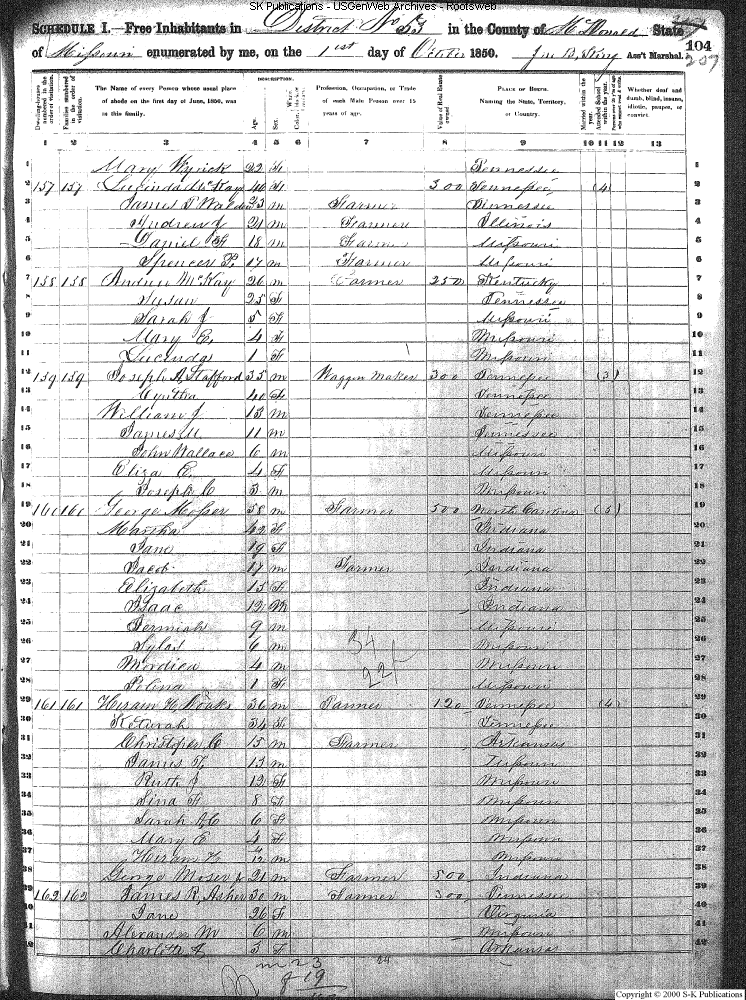 SK Publications - USGenWeb Archives - Rootsweb
SCHEDULE I.—Free Inhabitants in District No 53 in the County of McDonald State
of Missouri enumerated by me, on the 1st day of October 1850. Ass't Marshal.
104
207
Dwelling-houses numbered in the order of visitation.
Families numbered in the order of visitation.
The Name of every Person whose usual place of abode on the first day of June, 1850, was in this family.
DESCRIPTION.
Age.
Sex.
Profession, Occupation, or Trade of each Male Person over 15 years of age.
Value of Real Estate owned
PLACE OF BIRTH. Naming the State, Territory, or Country.
Married within the year.
Attended School within the year.
Whether deaf and dumb, blind, insane, idiotic, pauper, or convict.
1 2 3 4 5 6 7 8 9 10 11 12 13
1 Mary Wyrick 22 F Tennessee 1
2 157 157 Lucinda McKay 40 F 300 Tennessee (4) 2
3 James P 23 m Farmer Tennessee 3
4 Andrew J 21 m Farmer Illinois 4
5 Daniel F 18 m Farmer Missouri 5
6 Spencer P. 17 m Farmer Missouri 6
7 158 158 Andrew McKay 26 m Farmer 250 Kentucky 7
8 Susan 25 F Tennessee 8
9 Sarah J 5 F Missouri 9
10 Mary E, 4 F Missouri 10
11 Lucinda 1 F Missouri 11
12 159 159 Joseph A, Stafford 35 m Waggon Maker 300 Tennessee (3) 12
13 Cyntha 40 F Tennessee 13
14 William J 13 m Tennessee 14
15 James M. 11 m Tennessee 15
16 John Wallace 6 m Missouri 16
17 Eliza E. 4 F Missouri 17
18 Joseph C 3 m Missouri 18
19 160 160 George Mosser 58 m Farmer 500 North Carolina (5) 19
20 Martha 42 F Indiana 20
21 Jane 19 F Indiana 21
22 Jacob 17 m Farmer Indiana 22
23 Elizabeth 15 F Indiana 23
24 Isaac 12 M Indiana 24
25 Jermiah 9 m Missouri 25
26 Sylas 6 m Missouri 26
27 Mordica 4 m Missouri 27
28 Polina 1 F Missouri 28
29 161 161 Hiram H, Roark 36 m Farmer 120 Tennessee (4) 29
30 Keturah 34 F Tennessee 30
31 Christopher C 15 m Farmer Arkansas
32 James K, 13 m Missouri
33 Ruth J 12 F Missouri
34 Sina F 8 F Missouri
35 Sarah A C 6 F Missouri
36 Mary E 4 F Missouri
37 Hiram m Missouri
38 George Moser 21 m Farmer 500 Indiana
39 162 162 James R, Asher 30 m Farmer 300 Tennessee
40 Jane 26 F Virginia
41 Alexander M 6 m Missouri
42 Charlotte A 3 F Arkansas
34
22
m 23
f 19
24
Copyright © 2000 S-K Publications